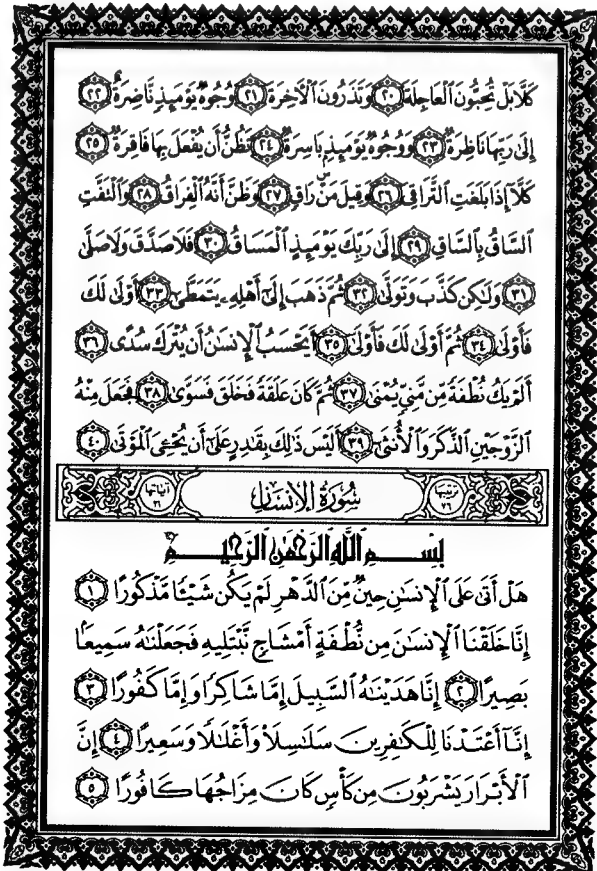 كَلَّا بَلْ تُحِبُّونَ ٱلْعَاجِلَةَ ٢٠ وَتَذَرُونَ ٱلْآخِرَةَ ٢١ وُجُوهٌ يَوْمَئِذٍ نَّاضِرَةٌ ٢٢
إِلَىٰ رَبِّهَا نَاظِرَةٌ ٢٣ وَوُجُوهٌ يَوْمَئِذٍ بَاسِرَةٌ ٢٤ تَظُنُّ أَن يُفْعَلَ بِهَا فَاقِرَةٌ ٢٥
كَلَّآ إِذَا بَلَغَتِ ٱلتَّرَاقِيَ ٢٦ وَقِيلَ مَنْ ۜ رَاقٍ ٢٧ وَظَنَّ أَنَّهُ ٱلْفِرَاقُ ٢٨ وَٱلْتَفَّتِ
ٱلسَّاقُ بِٱلسَّاقِ ٢٩ إِلَىٰ رَبِّكَ يَوْمَئِذٍ ٱلْمَسَاقُ ٣٠ فَلَا صَدَّقَ وَلَا صَلَّىٰ
٣١ وَلَٰكِن كَذَّبَ وَتَوَلَّىٰ ٣٢ ثُمَّ ذَهَبَ إِلَىٰٓ أَهْلِهِۦ يَتَمَطَّىٰٓ ٣٣ أَوْلَىٰ لَكَ
فَأَوْلَىٰ ٣٤ ثُمَّ أَوْلَىٰ لَكَ فَأَوْلَىٰٓ ٣٥ أَيَحْسَبُ ٱلْإِنسَٰنُ أَن يُتْرَكَ سُدًى ٣٦
أَلَمْ يَكُ نُطْفَةً مِّن مَّنِىٍّ يُمْنَىٰ ٣٧ ثُمَّ كَانَ عَلَقَةً فَخَلَقَ فَسَوَّىٰ ٣٨ فَجَعَلَ مِنْهُ
ٱلزَّوْجَيْنِ ٱلذَّكَرَ وَٱلْأُنثَىٰٓ ٣٩ أَلَيْسَ ذَٰلِكَ بِقَٰدِرٍ عَلَىٰٓ أَن يُحْـِۧىَ ٱلْمَوْتَىٰ ٤٠
ترتيبها ٧٦ سُورَةُ الإِنسَانِ آياتها ٣١
بِسْمِ ٱللَّهِ ٱلرَّحْمَٰنِ ٱلرَّحِيمِ
هَلْ أَتَىٰ عَلَى ٱلْإِنسَٰنِ حِينٌ مِّنَ ٱلدَّهْرِ لَمْ يَكُن شَيْـًٔا مَّذْكُورًا ١
إِنَّا خَلَقْنَا ٱلْإِنسَٰنَ مِن نُّطْفَةٍ أَمْشَاجٍ نَّبْتَلِيهِ فَجَعَلْنَٰهُ سَمِيعًۢا
بَصِيرًا ٢ إِنَّا هَدَيْنَٰهُ ٱلسَّبِيلَ إِمَّا شَاكِرًا وَإِمَّا كَفُورًا ٣
إِنَّآ أَعْتَدْنَا لِلْكَٰفِرِينَ سَلَٰسِلَا۟ وَأَغْلَٰلًا وَسَعِيرًا ٤ إِنَّ
ٱلْأَبْرَارَ يَشْرَبُونَ مِن كَأْسٍ كَانَ مِزَاجُهَا كَافُورًا ٥